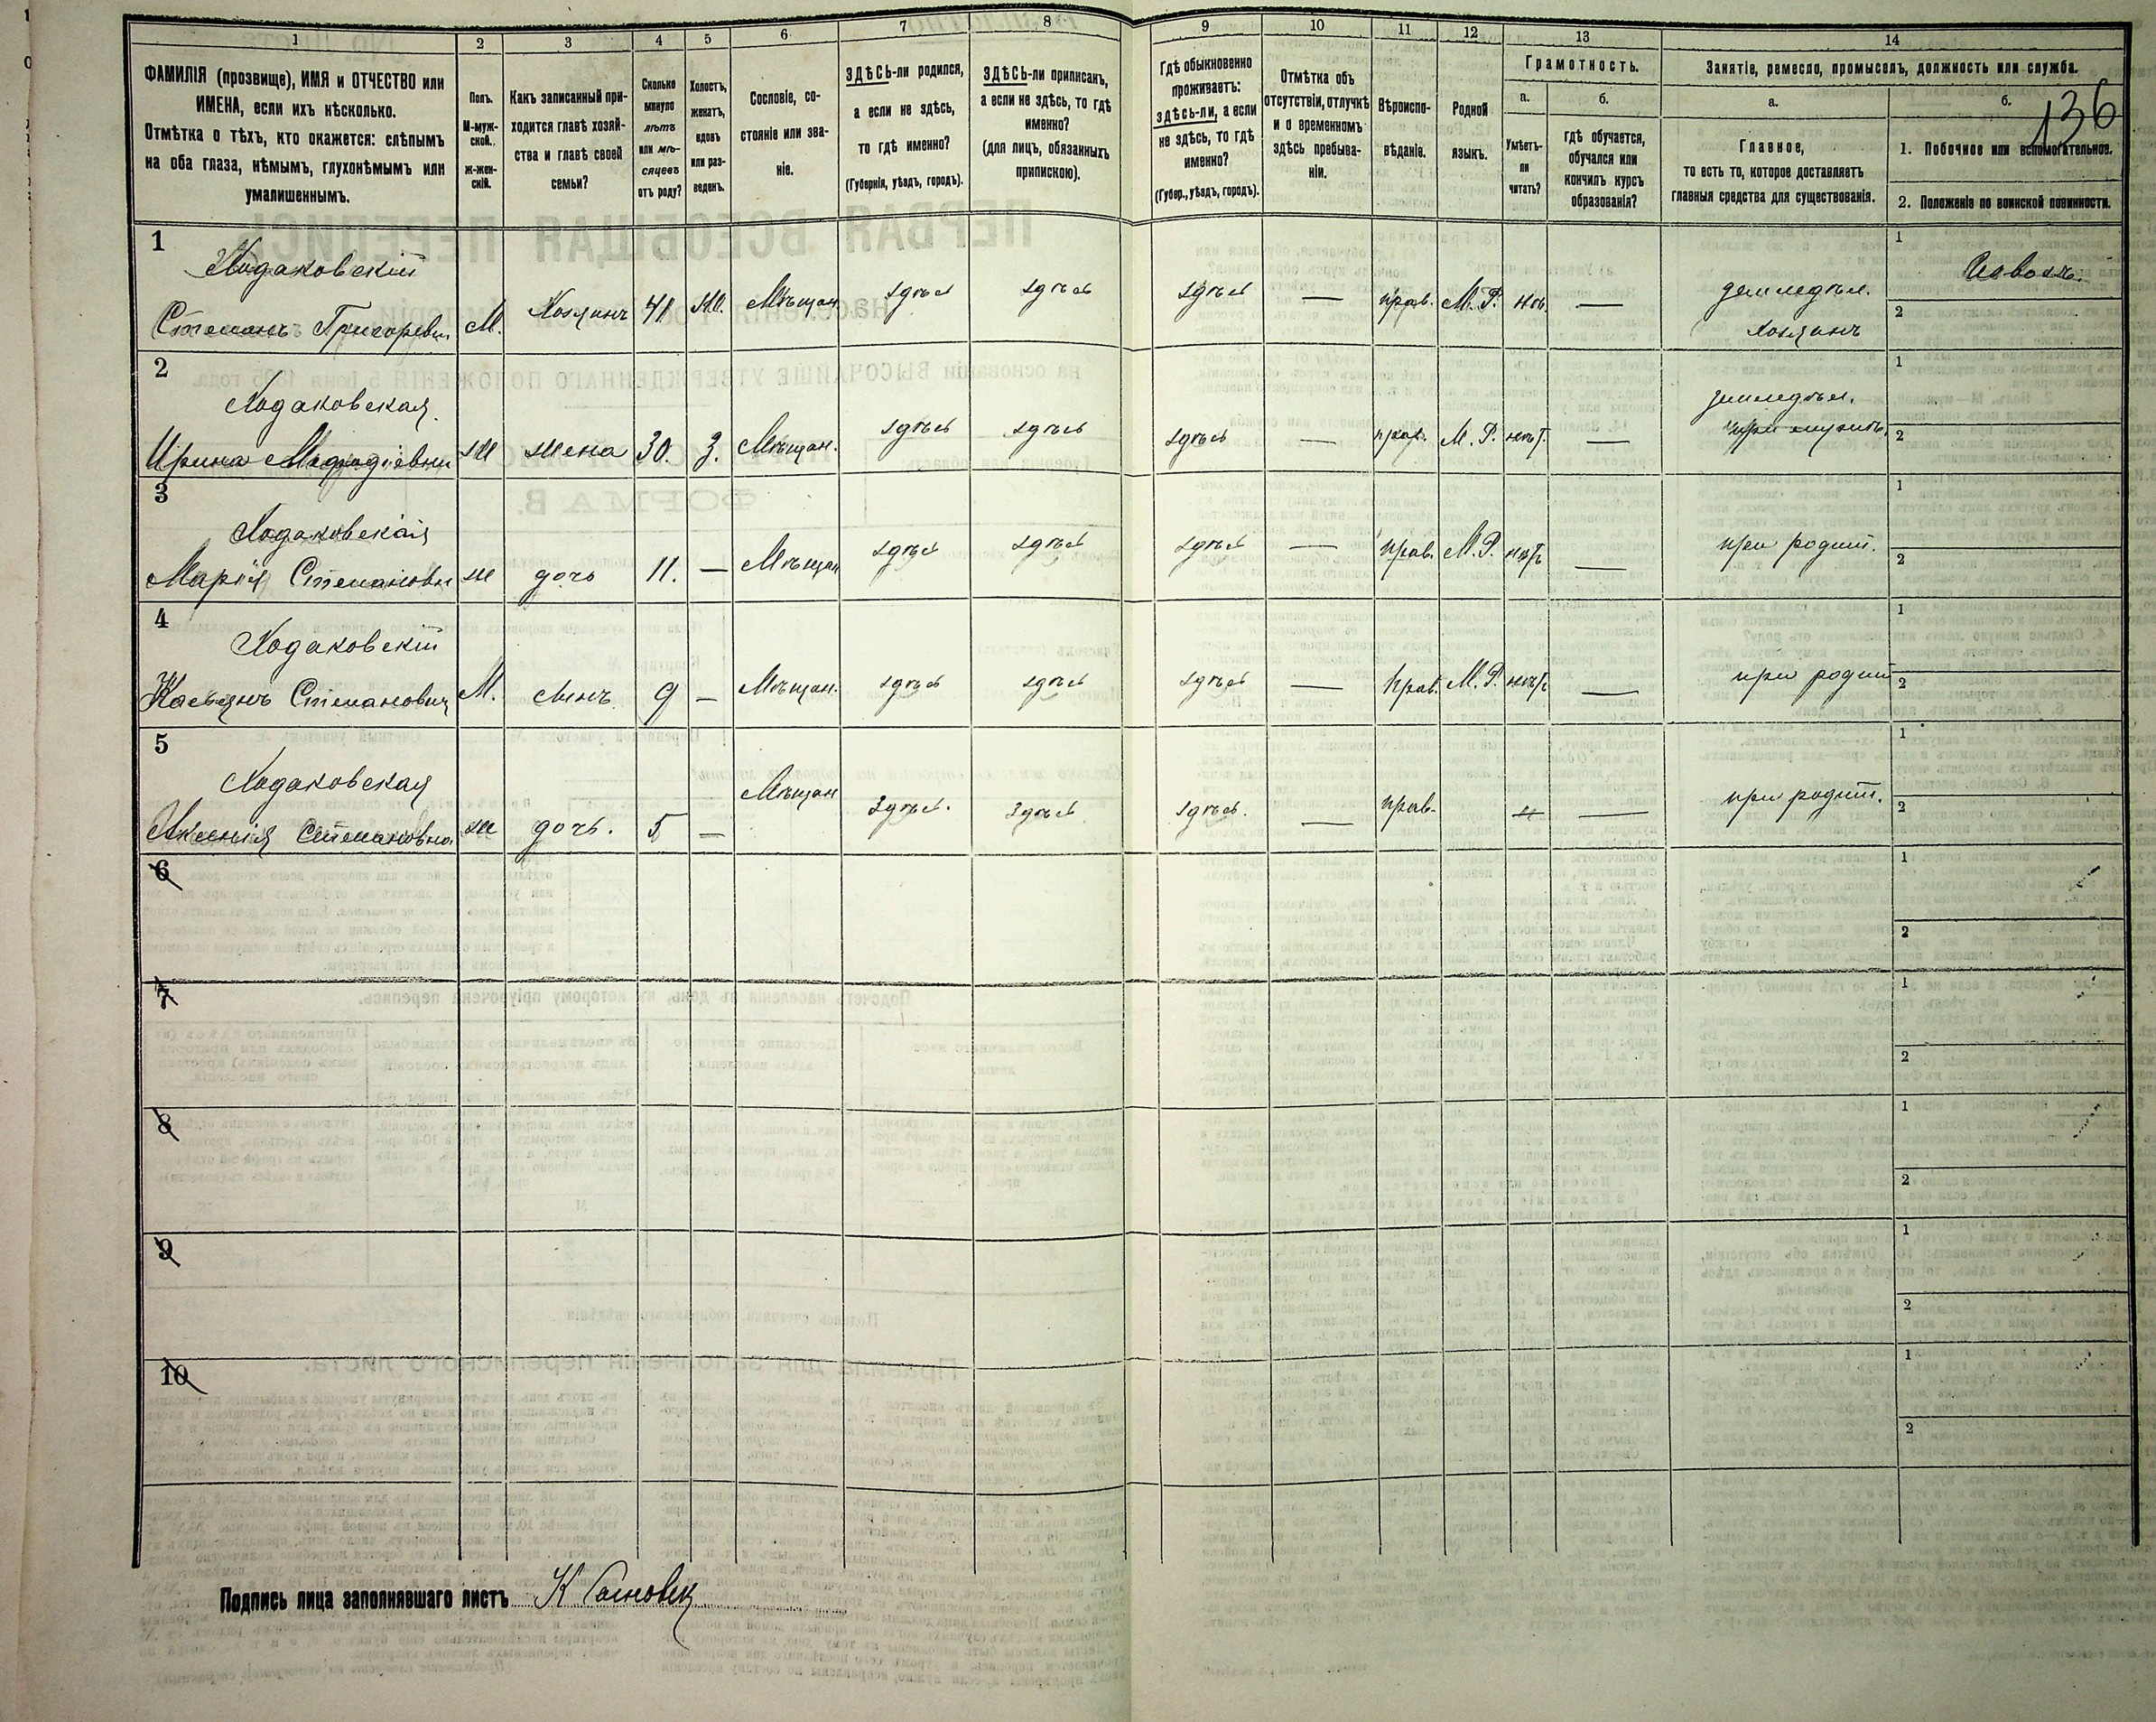 1 2 3 4 5 6 7 8 9 10 11 12 13 14
ФАМИЛІЯ (прозвище), ИМЯ и ОТЧЕСТВО или
ИМЕНА, если ихъ нѣсколько.
Отмѣтка о тѣхъ, кто окажется: слѣпымъ
на оба глаза, нѣмымъ, глухонѣмымъ или
умалишеннымъ.
Полъ.
М-муж-
ской.
ж-жен-
скій.
Какъ записанный при-
ходится главѣ хозяй-
ства и главѣ своей
семьи?
Сколько
минуло
лѣтъ
или мѣ-
сяцевъ
отъ роду?
Холостъ,
женатъ,
вдовъ
или раз-
веденъ.
Сословіе, со-
стояніе или зва-
ніе.
ЗДѢСЬ-ли родился,
а если не здѣсь,
то гдѣ именно?
(Губернія, уѣздъ, городъ).
ЗДѢСЬ-ли приписанъ,
а если не здѣсь, то гдѣ
именно?
(для лицъ, обязанныхъ
припискою).
Гдѣ обыкновенно
проживаетъ:
здѣсь-ли, а если
не здѣсь, то гдѣ
именно?
(Губер., уѣздъ, городъ).
Отмѣтка объ
отсутствіи, отлучкѣ
и о временномъ
здѣсь пребыва-
ніи.
Вѣроиспо-
вѣданіе.
Родной
языкъ.
Грамотность.
а.
Умѣетъ-
ли
читать?
б.
гдѣ обучается,
обучался или
кончилъ курсъ
образованія?
Занятіе, ремесло, промыселъ, должность или служба.
а.
Главное,
то есть то, которое доставляетъ
главныя средства для существованія.
б.
136
1. Побочное или вспомогательное.
2. Положеніе по воинской повинности.
1
Ходаковскій
Степанъ Григорьевич М. Хозяинъ 41 Ж. Мѣщан. здѣсь здѣсь здѣсь — прав. М. Р. нѣ. — земледѣл.
хозяинъ
1
2
2
Ходаковская
Ирина ж жена 30. З. Мѣщан. здѣсь здѣсь здѣсь — прав. М. Р. нѣт. — земледѣл.
при мужѣ
1
2
3
Ходаковская
Марія Степановн ж дочь 11. — Мѣщан здѣсь здѣсь здѣсь — прав. М. Р. нѣтъ — при родит.
1
2
4
Ходаковскій
Касьянъ Степанович М. сынъ 9 — Мѣщан. здѣсь здѣсь здѣсь — прав. М. Р. нѣтъ — при родит
1
2
5
Ходаковская
Аксенія Степановна ж дочь. 5 — Мѣщан здѣсь. здѣсь здѣсь. — прав. — при родит.
1
2
6
1
2
7
1
2
8
1
2
9
1
2
10
1
2
Подпись лица заполнявшаго листъ